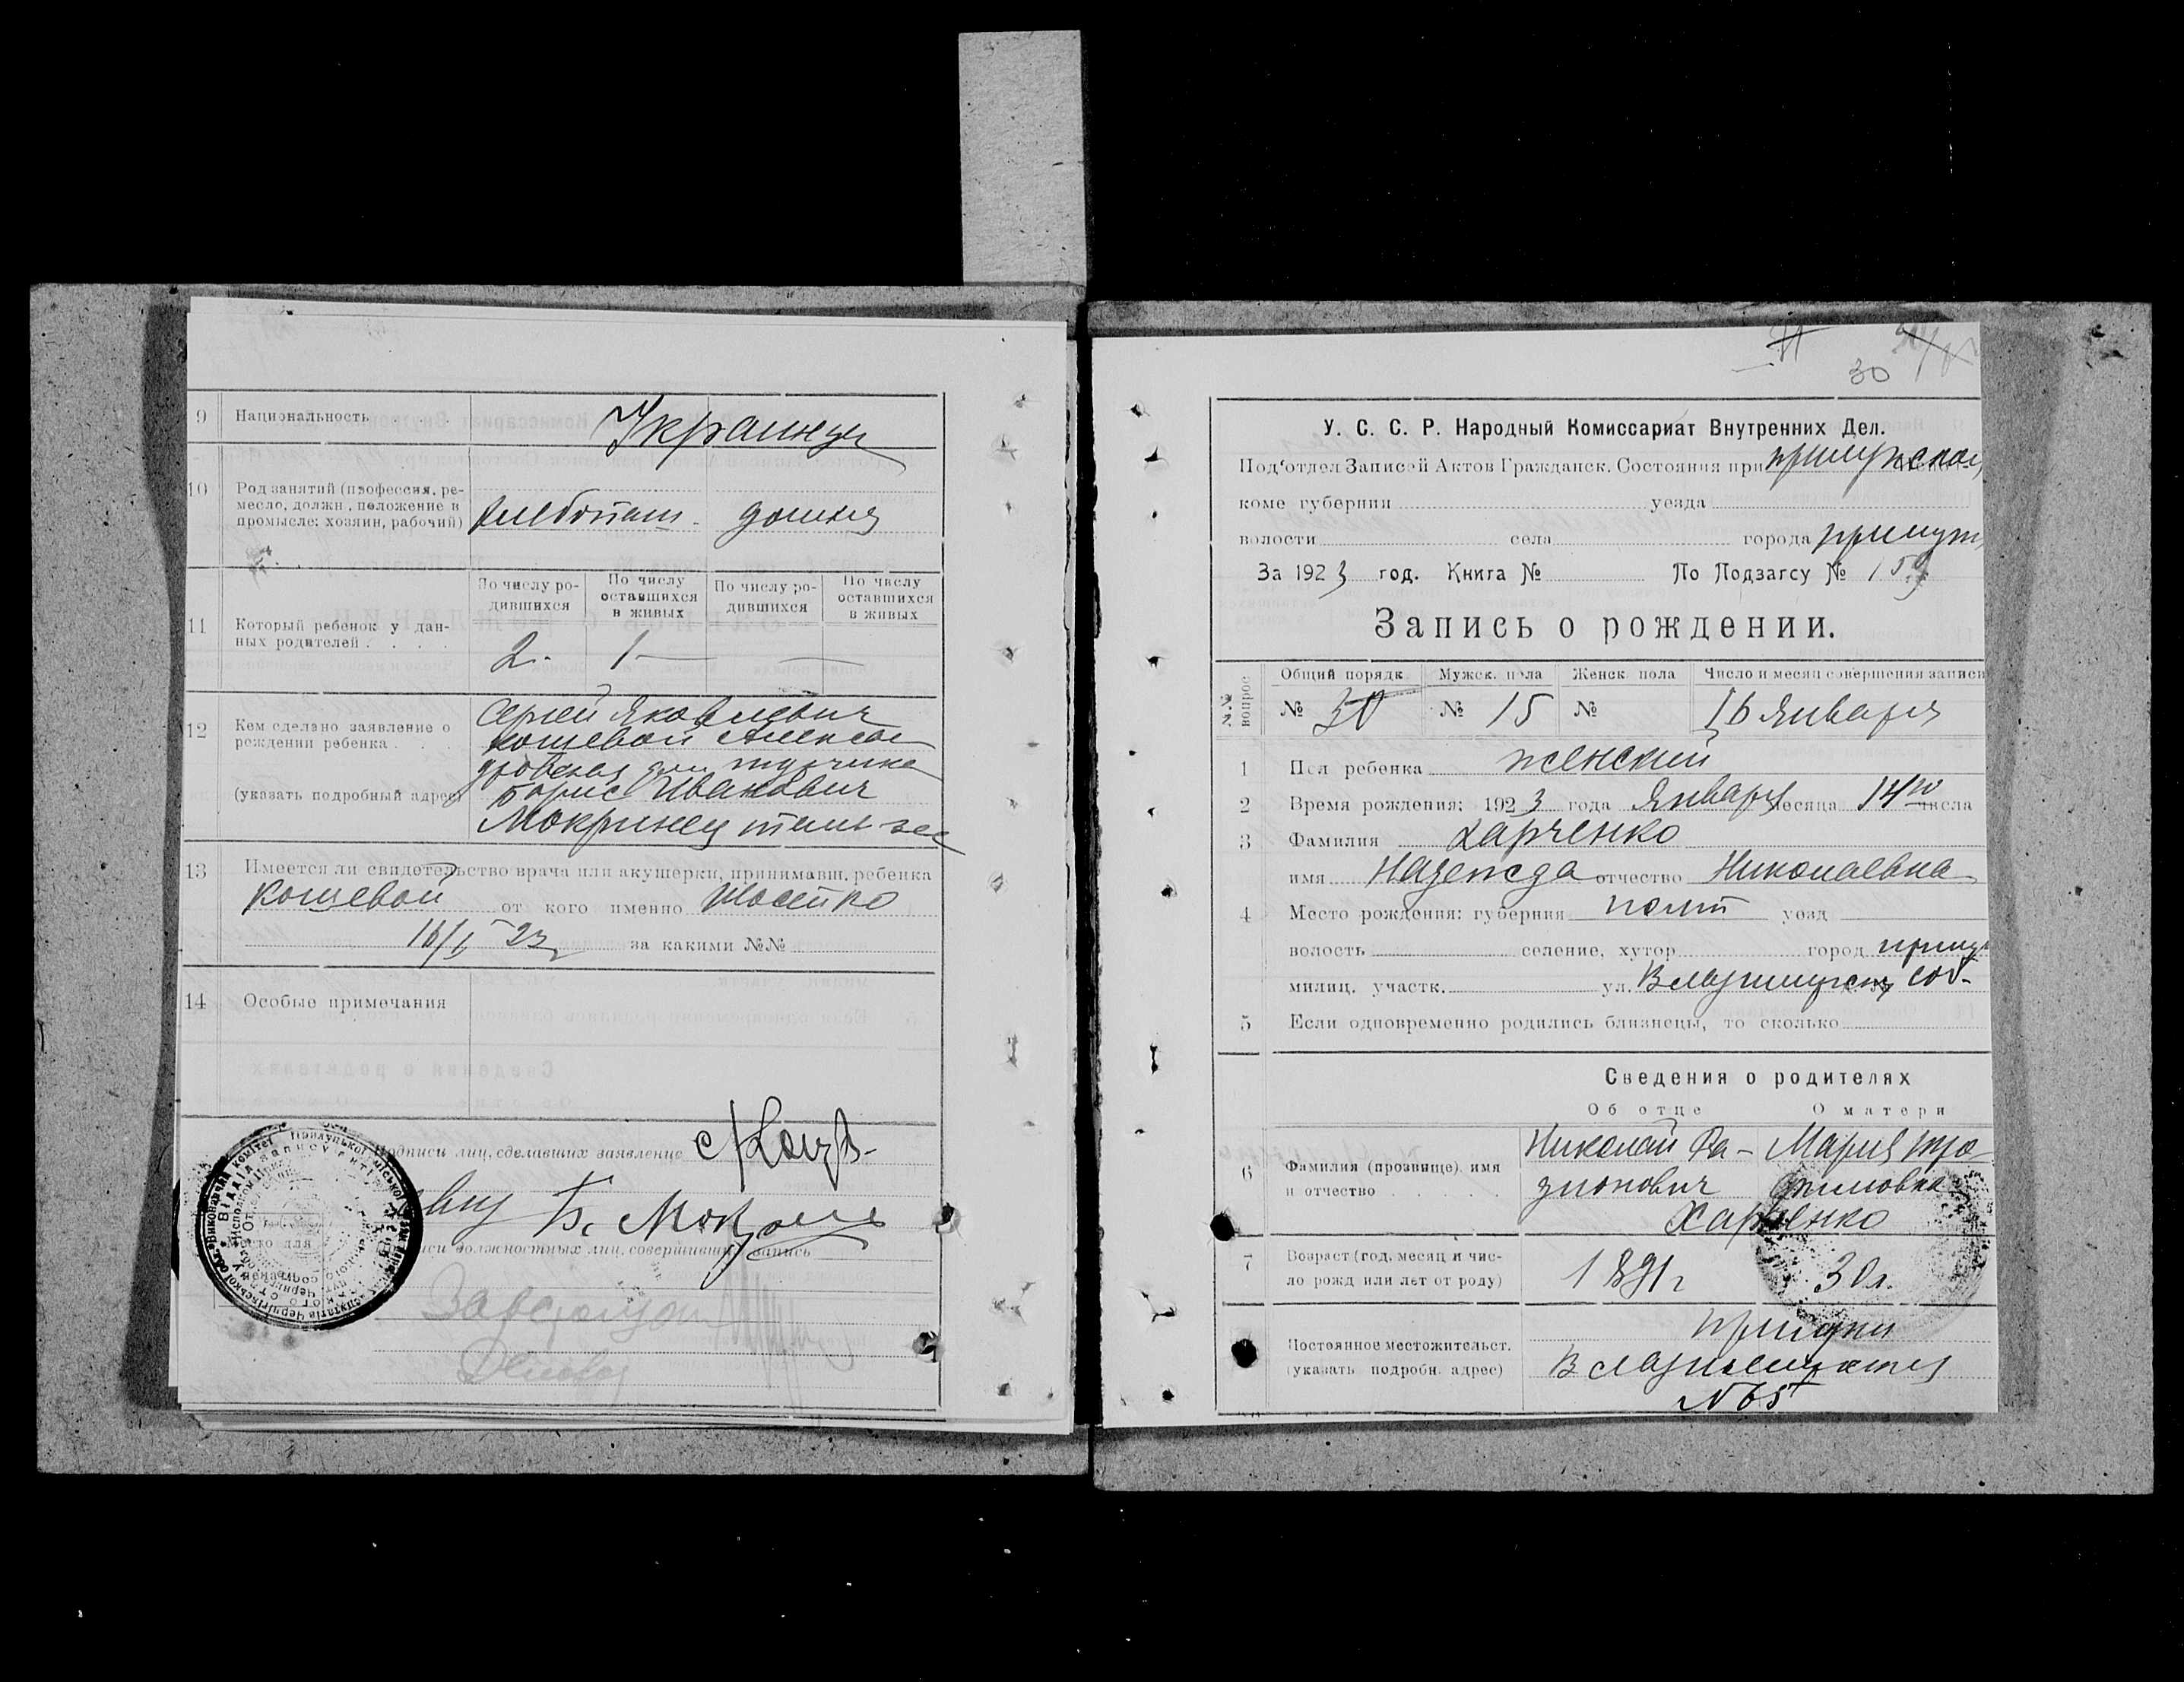 9 Национальность Украинцы
10 Род занятий (профессия, ре-
месло, должн., положение в
промысле: хозяин, рабочий) хлебопаш. домаш
По числу ро-
дившихся
По число
оставшихся
в живых
По числу ро-
дившихся
По числу
оставшихся
в живых
11 Который ребенок у дан-
ных родителей . . . .
2. 1
12 Кем сделано заявление о
рождении ребенка . . .
(указать подробный адрес)
Сергей Яковлевич
Кошевой Алексан
дровская
Борис Иванович
Мокринец
13 Имеется ли свидетельство врача или акушерки, принимавш. ребенка
Кошевой от кого именно Мосейко
16/I 23 за какими №№
14 Особые примечания
Подписи лиц, сделавших заявление
Б.
должностных лиц, совершивш. запись
30
У. С. С. Р. Народный Комиссариат Внутренних Дел.
Под'отдел Записей Актов Гражданск. Состояния при прилукском
коме губернии уезда
волости села города прилуки
За 1923 год. Книга № По Подзагсу № 159
Запись о рождении.
№№ вопрос
Общий порядк Мужск. пола Женск. пола Число и месяц совершения записи
№ 30 № 15 № 16 Января
1 Пол ребенка женский
2 Время рождения: 1923 года Января месяца 14го числа
3 Фамилия Харченко
имя Надежда отчество Николаевна
4 Место рождения: губерния полт уезд
волость селение, хутор город прилук
милиц. участк. ул. Владимирск соб.
5 Если одновременно родились близнецы, то сколько
Сведения о родителях
Об отце О матери
6 Фамилия (прозвище), имя
и отчество . . . . . .
Николай Ро-
дионович
Мария Тро
фимовна
Харченко
7 Возраст (год, месяц и чис-
ло рожд или лет от роду)
1891 г 30 л.
Постоянное местожительст.
(указать подробн. адрес)
Прилуки
Владимирская
№ 65